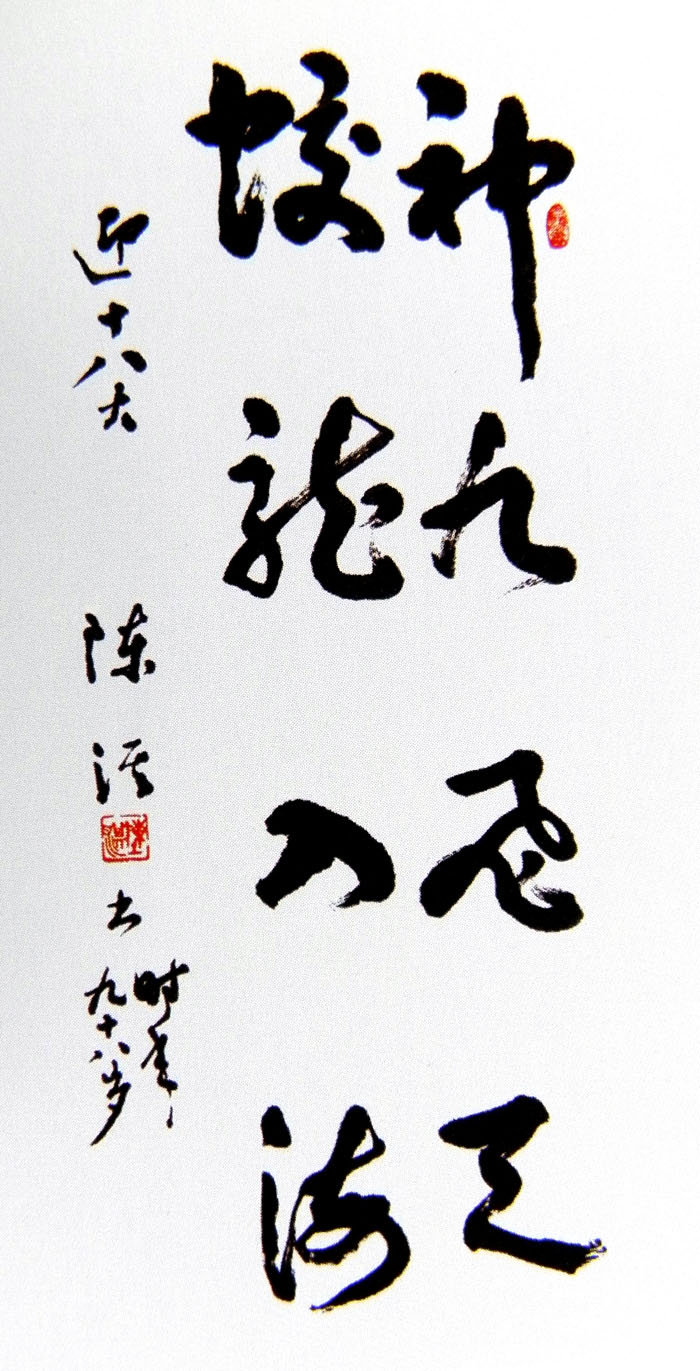 神九飛天
蛟龍入海
迎十八大
陈
书
时年
九十八岁